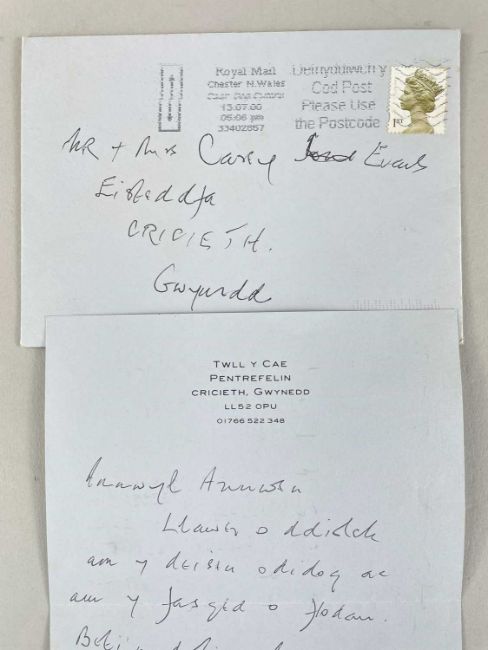 Royal Mail
Chester N.Wales
13.07.00
05:06 pm
33402857
Defnyddiwch y
Cod Post
Please Use
the Postcode
1ST
MR + Mrs Carey Evans
Eisteddfa
CRICIETH.
Gwynedd
TWLL Y CAE
PENTREFELIN
CRICIETH, GWYNEDD
LL52 0PU
01766 522 348
Annwyl Annwen
Llawer o ddiolch
am y deisen odidog ac
am y fasged o flodau.